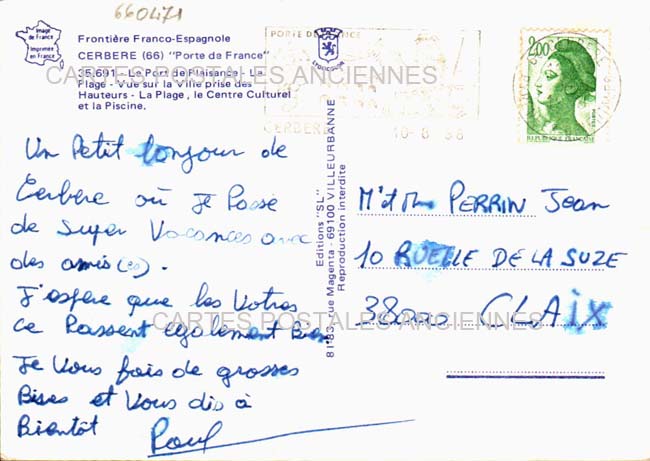 660471
Image de France
Imprimée en France
Frontière Franco-Espagnole
CERBERE (66) "Porte de France"
35/691 - Le Port de Plaisance - La
Plage - Vue sur la Ville prise des
Hauteurs - La Plage, le Centre Culturel
et la Piscine.
CARTES POSTALES ANCIENNES
Un Petit bonjour de
Cerbère où Je Passe
de Super Vacances avec
des amis(es).
J'espère que les Votres
ce Passent également Bien
Je Vous fais de grosses
Bises et Vous dis à
Bientôt Paul
Editions "SL"
81-83, rue Magenta - 69100 VILLEURBANNE
Reproduction interdite
PORTE DE FRANCE
CERBERE
2,00
REPUBLIQUE FRANCAISE
M'et Mme PERRIN Jean
10 RUELLE DE LA SUZE
38000 CLAIX
CARTES POSTALES ANCIENNES